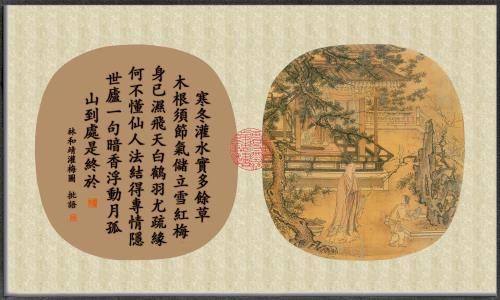 寒冬灌水實多餘草
木根須節氣儲立雪紅梅
身已濕飛天白鶴羽尤疏緣
何不懂仙人法結得專情隱
世廬一句暗香浮動月孤
山到處是終於
林和靖灌梅圖 批語